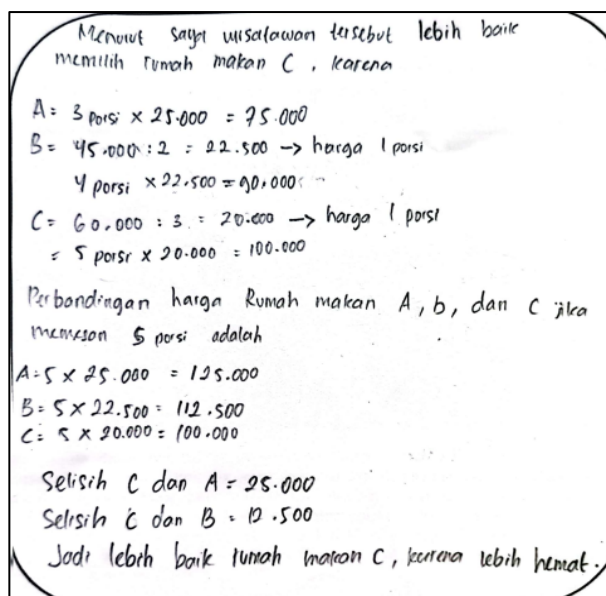 Menurut saya wisatawan tersebut lebih baik
memilih rumah makan C, karena
A = 3 porsi × 25.000 = 75.000
B = 45.000 : 2 = 22.500 → harga 1 porsi
4 porsi × 22.500 = 90.000
C = 60.000 : 3 = 20.000 → harga 1 porsi
= 5 porsi × 20.000 = 100.000
Perbandingan harga Rumah makan A, b, dan C jika
memesan 5 porsi adalah
A = 5 × 25.000 = 125.000
B = 5 × 22.500 = 112.500
C = 5 × 20.000 = 100.000
Selisih C dan A = 25.000
Selisih C dan B = 12.500
Jadi lebih baik rumah makan C, karena lebih hemat.